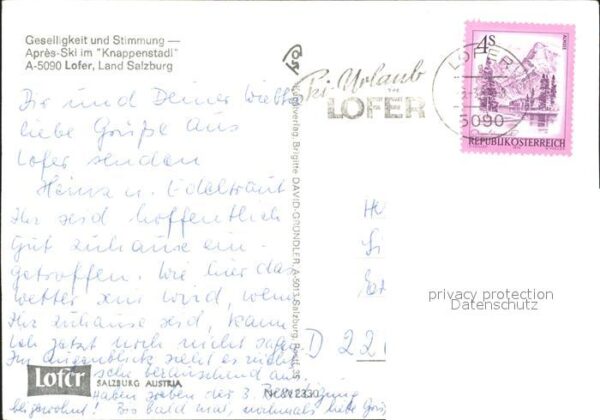 Geselligkeit und Stimmung —
Après-Ski im "Knappenstadl"
A-5090 Lofer, Land Salzburg
4S
ALMSEE
REPUBLIK ÖSTERREICH
Ski-Urlaub
LOFER
LOFER
5090
Kunstverlag Brigitte DAVID-GRÜNDLER, A-5013 Salzburg, Postf. 35
Dir und Deiner
liebe Grüße aus
Lofer senden
Heinz u. Edeltraut
Ihr seid hoffentlich
gut zuhause ein-
getroffen. Wie hier das
Wetter sein wird, wenn
Ihr zuhause seid, kann
ich jetzt noch nicht sagen.
Im Augenblick sieht es nicht
sehr berauschend aus.
haben soeben die 3.
Bis bald mal, nochmals liebe Grüße
D 22
privacy protection
Datenschutz
Lofer
SALZBURG AUSTRIA